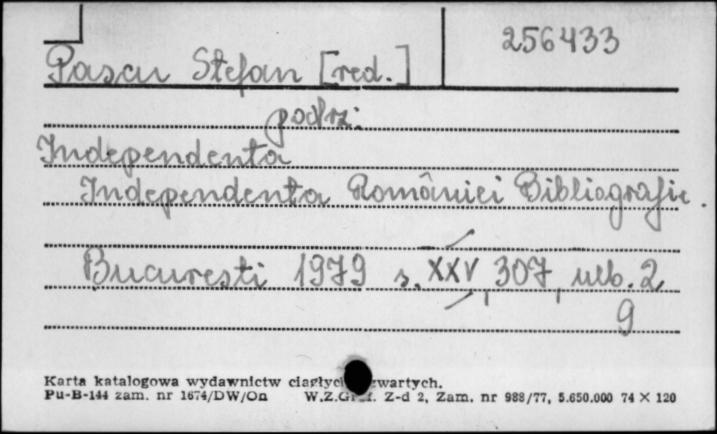 256433
Pascu Stefan [red.]
podrz.
Independenta
Independenta României Bibliografie.
Bucureşti 1979 s. XXV, 307, nlb. 2
9
Karta katalogowa wydawnictw zwartych.
Pu-B-144 zam. nr 1674/DW/On W.Z.Graf. Z-d 2, Zam. nr 988/77, 5.650.000 74 × 120